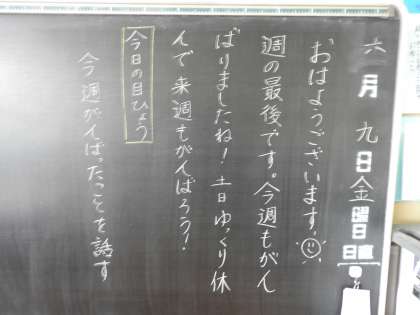 六月九日金曜日
日直
おはようございます。
週の最後です。今週もがん
ばりましたね！土日ゆっくり休
んで来週もがんばろう！
今日の目ひょう
今週がんばったことを話す